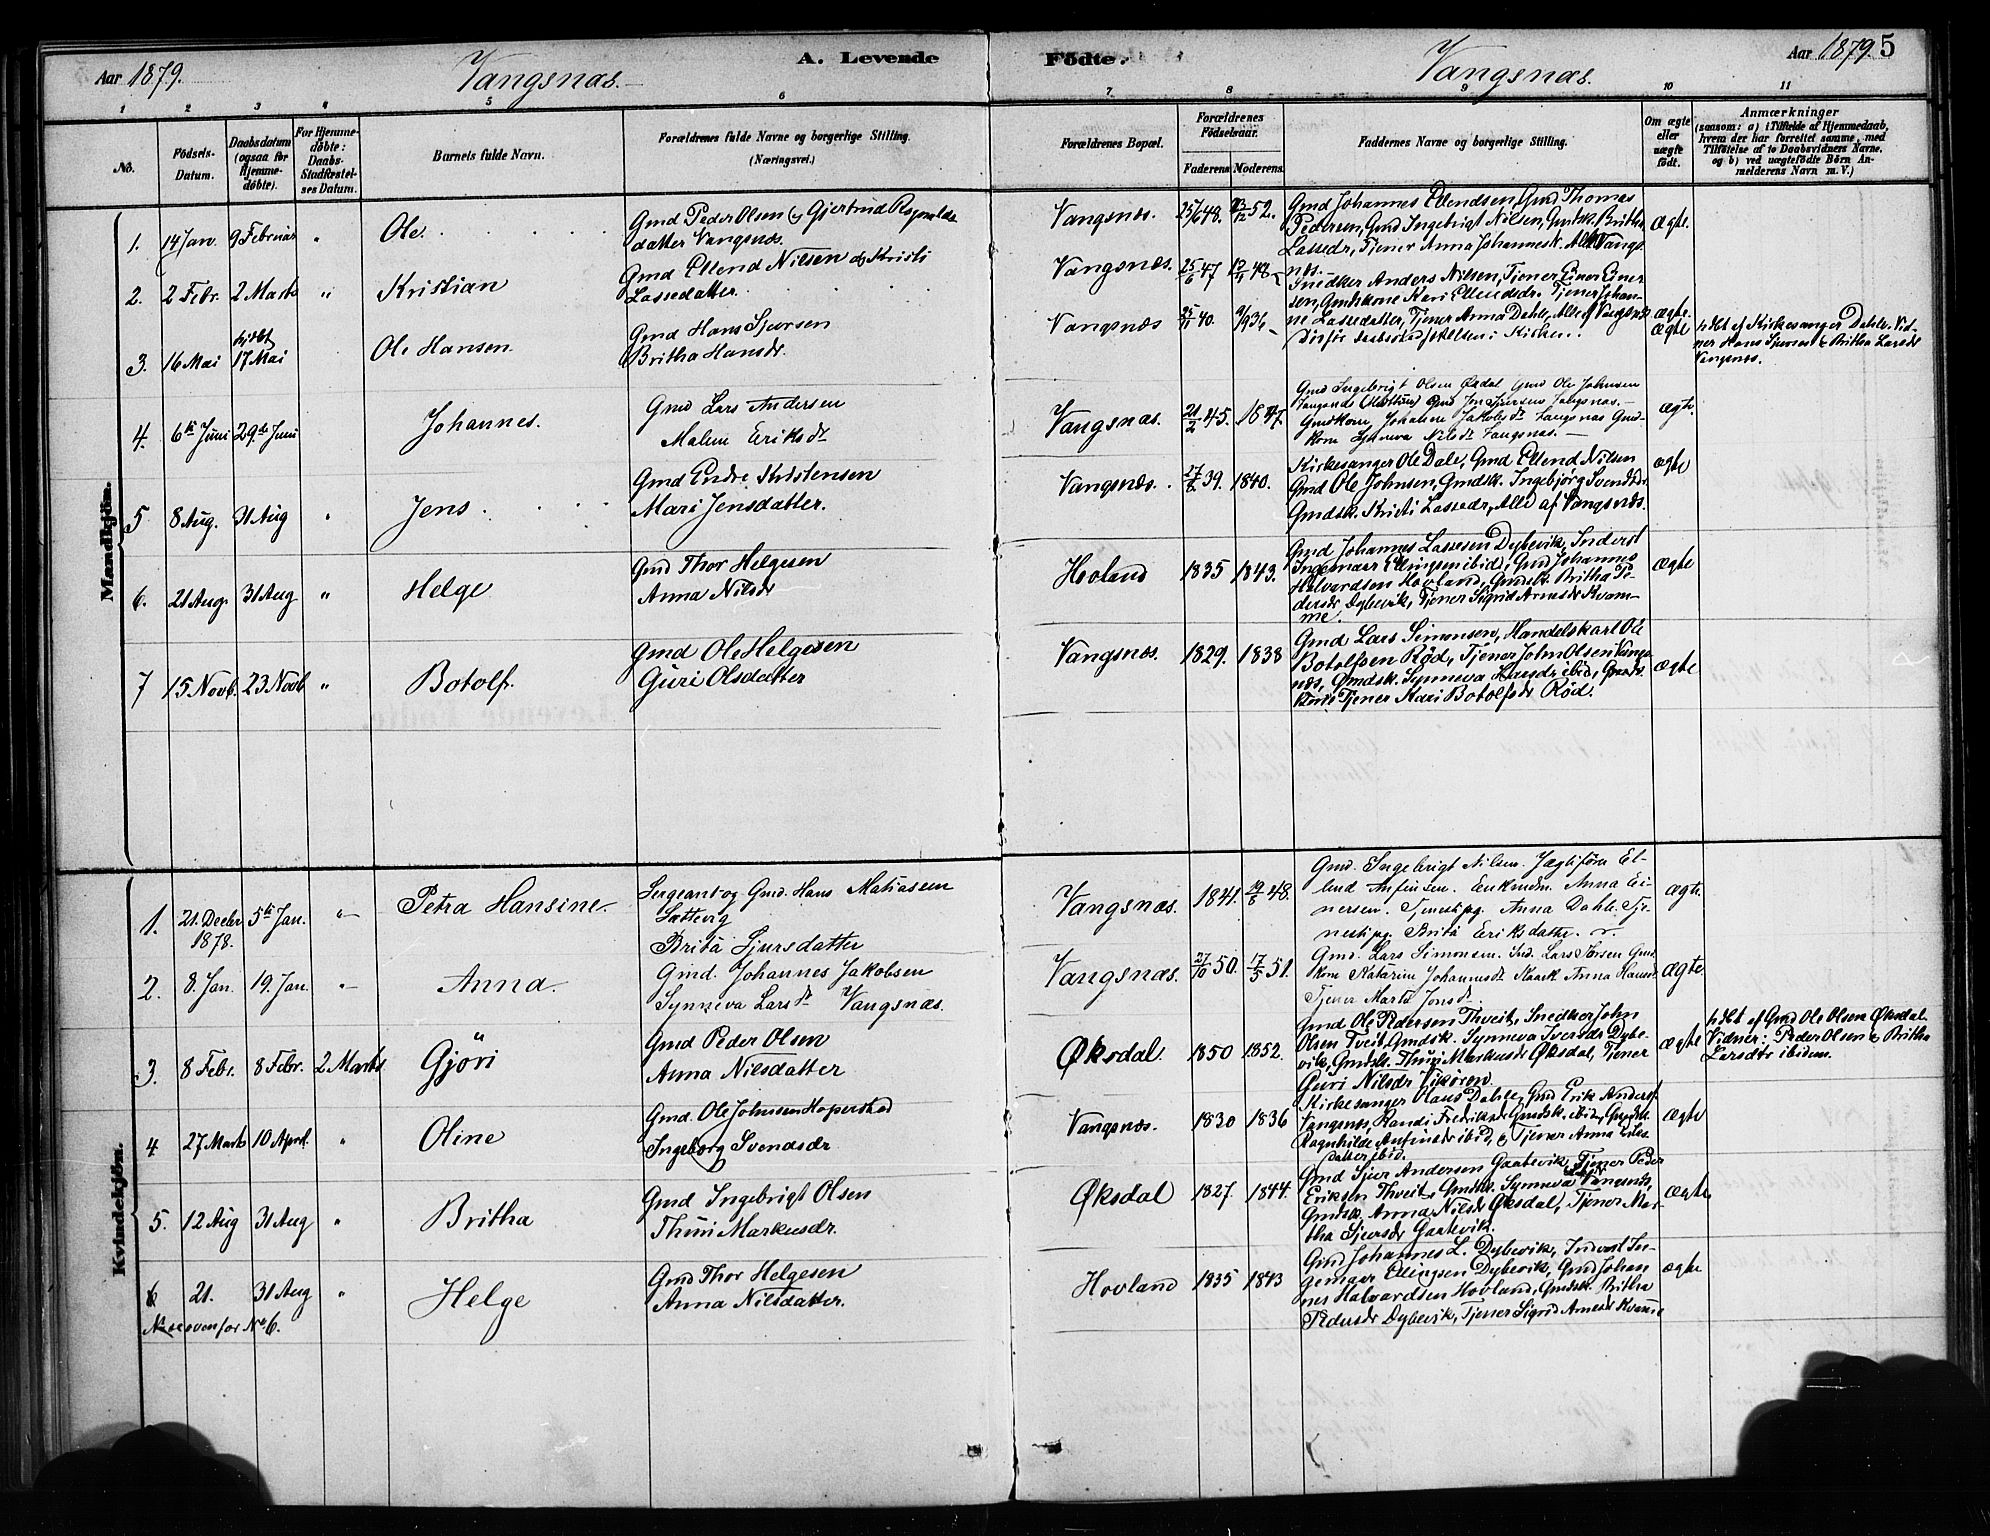 Aar 1879.
Vangsnæs.
A. Levende
Fødte.
Vangsnæs.
Aar 1879.
5
1 2 3 4 5 6 7 8 9 10 11
No.
Fødsels-
Datum.
Daabsdatum
(ogsaa for
Hjemme-
døbte).
For Hjemme-
døbte:
Daabs-
Stadfæstel-
ses Datum.
Barnets fulde Navn.
Forældrenes fulde Navne og borgerlige Stilling.
(Næringsvei.)
Forældrenes Bopæl.
Forældrenes
Fødselsaar.
Faderens
Moderens.
Faddernes Navne og borgerlige Stilling.
Om ægte
eller
uægte
født.
Anmærkninger
(saasom: a) i Tilfælde af Hjemmedaab,
hvem der har forrettet samme, med
Tilføielse af to Daabsvidners Navne,
og b) ved uægtefødte Børn An-
melderens Navn m. V.)
Mandkjøn.
1. 14 Jan. 9 Februar " Ole.
Gmd Peder Olsen og Gjertrud Ragnalds
datter Vangsnæs.
Vangsnæs. 25/6 48. 23/12 52.
Gmd Johannes Ellendsen, Gmd Thomas
Pedersen, Gmd Ingebrigt Nilsen, Gmdsk. Britha
Lassedr, Tjener Anna Johannesdr. Alle Vangs
næs.
ægte.
2. 2 Febr. 2 Marts " Kristian
Gmd Ellend Nilsen og Kristi
Lassedatter.
Vangsnæs. 25/6 47 48
Snedker Anders Nilsen, Tjener Einer Einer
sen, Gmdskone Kari Ellendsdr. Tjener Johan-
ne Lassedatter, Tjener Anna Dahle, Alle af Vangsnæs
ægte.
3. 16 Mai 17 Mai Ole Hansen.
Gmd Hans Sjursen
Britha Hansdr.
Vangsnæs 40. 36
i Kirken.
ægte
hjdbt af Kirkesanger Dahle. Vid-
ner Hans Sjursen & Britha Larsdr
Vangsnæs.
4. 6te Juni 29de Juni Johannes.
Gmd Lars Andersen
Malene Eriksdr
Vangsnæs. 21/2 45. 1847.
Gmd Ingebrigt Olsen Øxdal Gmd Ole Johnsen
Vangsnæs Gmd Jon Iversen Vangsnæs.
Gmdkone Johanne Jakobsdr Vangsnæs Gmd-
kone Synneva Nilsdr Vangsnæs.
ægte.
5 8 Aug. 31 Aug " Jens
Gmd Endre Kristensen
Mari Jensdatter.
Vangsnæs. 39. 1840.
Kirkesanger Ole Dale, Gmd Ellend Nilsen
Gmd Ole Johnsen, Gmdsk. Ingebjørg Svendsdr.
Gmdsk. Kristi Lassedr, Alle af Vangsnæs.
ægte
6. 21 Aug. 31 Aug " Helge
Gmd Thor Helgesen
Anna Nilsdr
Hovland 1835 1843.
Gmd Johannes Lassesen Dybevik, Inderst
Ingemar Ellingsen ibid, Gmd Johannes
Halvardsen Hovland, Gmdsk. Britha Pe-
dersdr Dybevik, Tjener Sigrid Arnesdr Kvam-
me.
ægte
7 15 Novb. 23 Novb " Botolf.
Gmd Ole Helgesen
Guri Olsdatter
Vangsnæs. 1829. 1838
Gmd Lars Simonsen, Handelskarl Ole
Botolfsen Rød, Tjener John Olsen Vangs-
næs, Gmdsk. Synneva Hansdr ibid,
Tjener Kari Botolfsdr Rød.
ægte
Kvindekjøn.
1. 21. Decbr 5te Jan. "
1878.
Petra Hansine.
Sergeant og Gmd. Hans Matiassen
Brita Sjursdatter
Vangsnæs. 1841. 48.
Gmd. Ingebrigt Nilsen. Jægtfører El-
lend Anfinsen. Enkemdm. Anna Ei-
nersen. Tjenestpg. Anna Dahle. Tje-
nestpg. Brita Eriksdatter.
ægte.
2. 8. Jan. 19. Jan. " Anna.
Gmd. Johannes Jakobsen
Synneva Larsdr Vangsnæs.
Vangsnæs. 27/10 50. 17/5 51.
Gmd. Lars Simonsen. Ind. Lars Iversen Gmd
kone Katarina Johannesdr Anna Hansdr
Tjener Marta Jonsdr.
ægte
3. 8 Febr. 8 Febr. 2 Marts Gjöri
Gmd Peder Olsen
Anna Nilsdatter
Øksdal. 1850 1852.
Gmd Ole Pedersen Thveit, Snedker John
Olsen Tveit, Gmdsk. Synneva Iversdr Dybe-
vik, Gmdsk. Thuri Markusdr Øksdal, Tjener
Guri Nilsdr Vikøren.
ægte
hjdbt af Gmd Ole Olsen Øksdal.
Vidner: Peder Olsen & Britha
Larsdtr ibidem.
4 27 Marts 10 April. " Oline
Gmd. Ole Johnsen Hoperstad
Ingeborg Svendsdr
Vangsnæs. 1830 1836
Kirkesanger Claus Dahle, Gmd Erik Anders.
Vangsnæs, Randi Fredriksdr Gmdsk. ibid, Gmdsk.
Ragnhilde Anfinsdr ibid, & Tjener Anna Eriks
datter ibid.
ægte
5. 12 Aug 31 Aug " Britha
Gmd Ingebrigt Olsen
Thuri Markusdr.
Øksdal 1827. 1844.
Gmd Sjur Andersen Gaatevik, Tjener Peder
Eriksen Thveit, Gmdsk. Synneva Vangsnæs,
Gmdsk. Anna Nilsdr Øksdal, Tjener Mar-
tha Sjursdr Gaatevik.
ægte
6 21. 31 Aug " Helge
ovenfor No 6.
Gmd Thor Helgesen
Anna Nilsdatter.
Hovland 1835 1843
Gmd Johannes L. Dybevik, Inderst In-
gemar Ellingsen Dybevik, Gmd Johan
nes Halvardsen Hovland, Gmdsk. Britha
Pedersdr Dybevik, Tjener Sigrid Arnesdr Kvamme
ægte